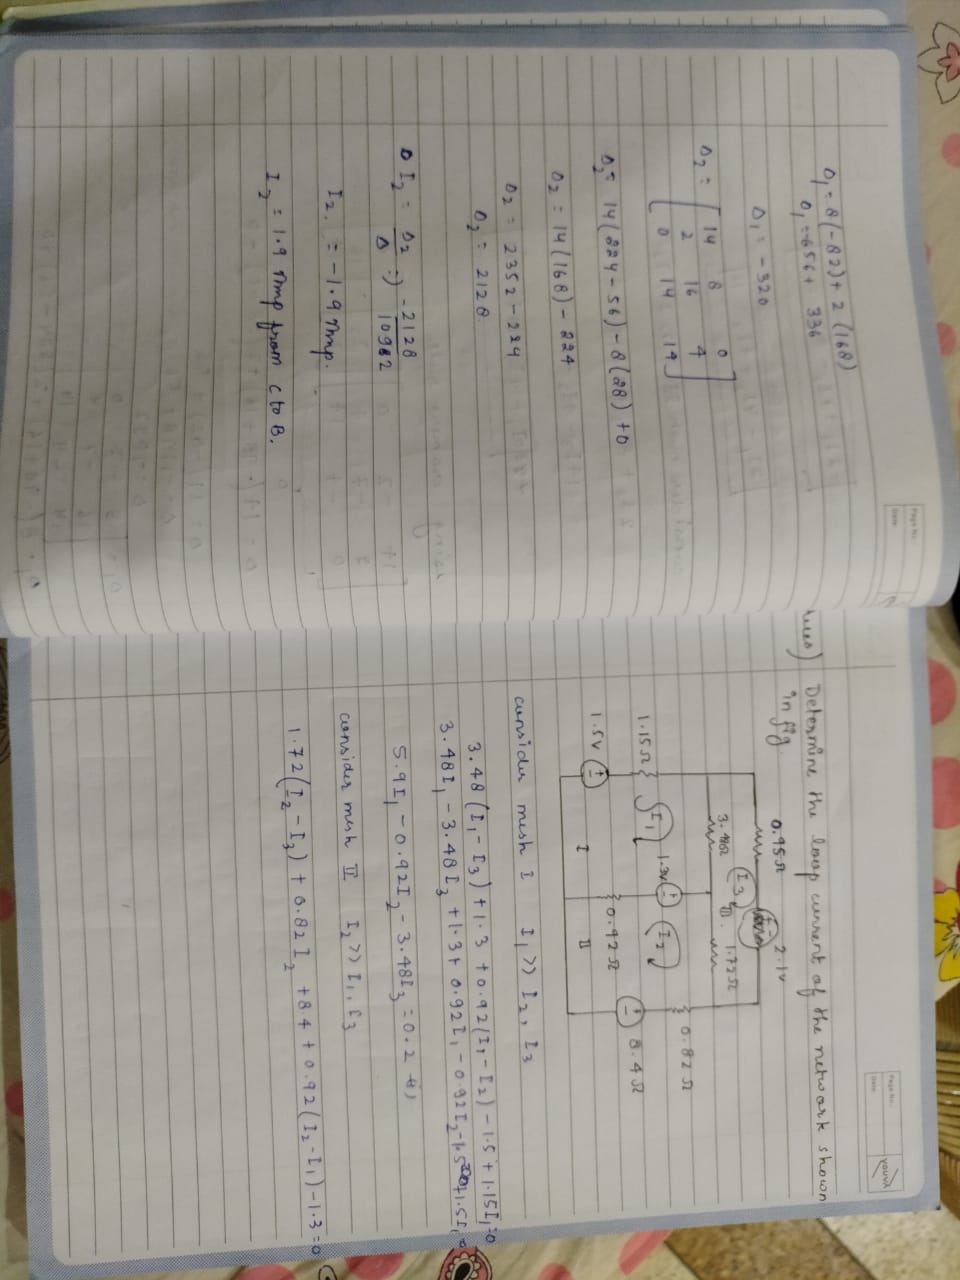 Page No.
Date
Δ₁ = 8(-82) + 2(168)
Δ₁ = -656 + 336
Δ₁ = -320
Δ₂ = [14 8 0
2 16 4
0 14 14]
Δ₂ = 14(224-56) - 8(28) + 0
Δ₂ = 14(168) - 224
Δ₂ = 2352 - 224
Δ₂ = 2128
I₂ = Δ₂/Δ => -2128/
I₂ = -1.9 Amp.
I₂ = 1.9 Amp from C to B.
Page No.
Date
youva
Determine the loop current of the network shown
in fig.
0.95Ω
2.1v
I₃
III
1.72Ω
1.15Ω
I₁
1.3v
I₂
0.82Ω
1.5v
I
0.92Ω
II
8.4Ω
consider mesh I I₁ >> I₂, I₃
3.48(I₁-I₃) + 1.3 + 0.92(I₁-I₂) - 1.5 + 1.15I₁ = 0
3.48I₁ - 3.48I₃ + 1.3 + 0.92I₁ - 0.92I₂ - 1.5
5.9I₁ - 0.92I₂ - 3.48I₃ = 0.2
consider mesh II I₂ >> I₁, I₃
1.72(I₂-I₃) + 0.82I₂ + 8.4 + 0.92(I₂-I₁) - 1.3 = 0